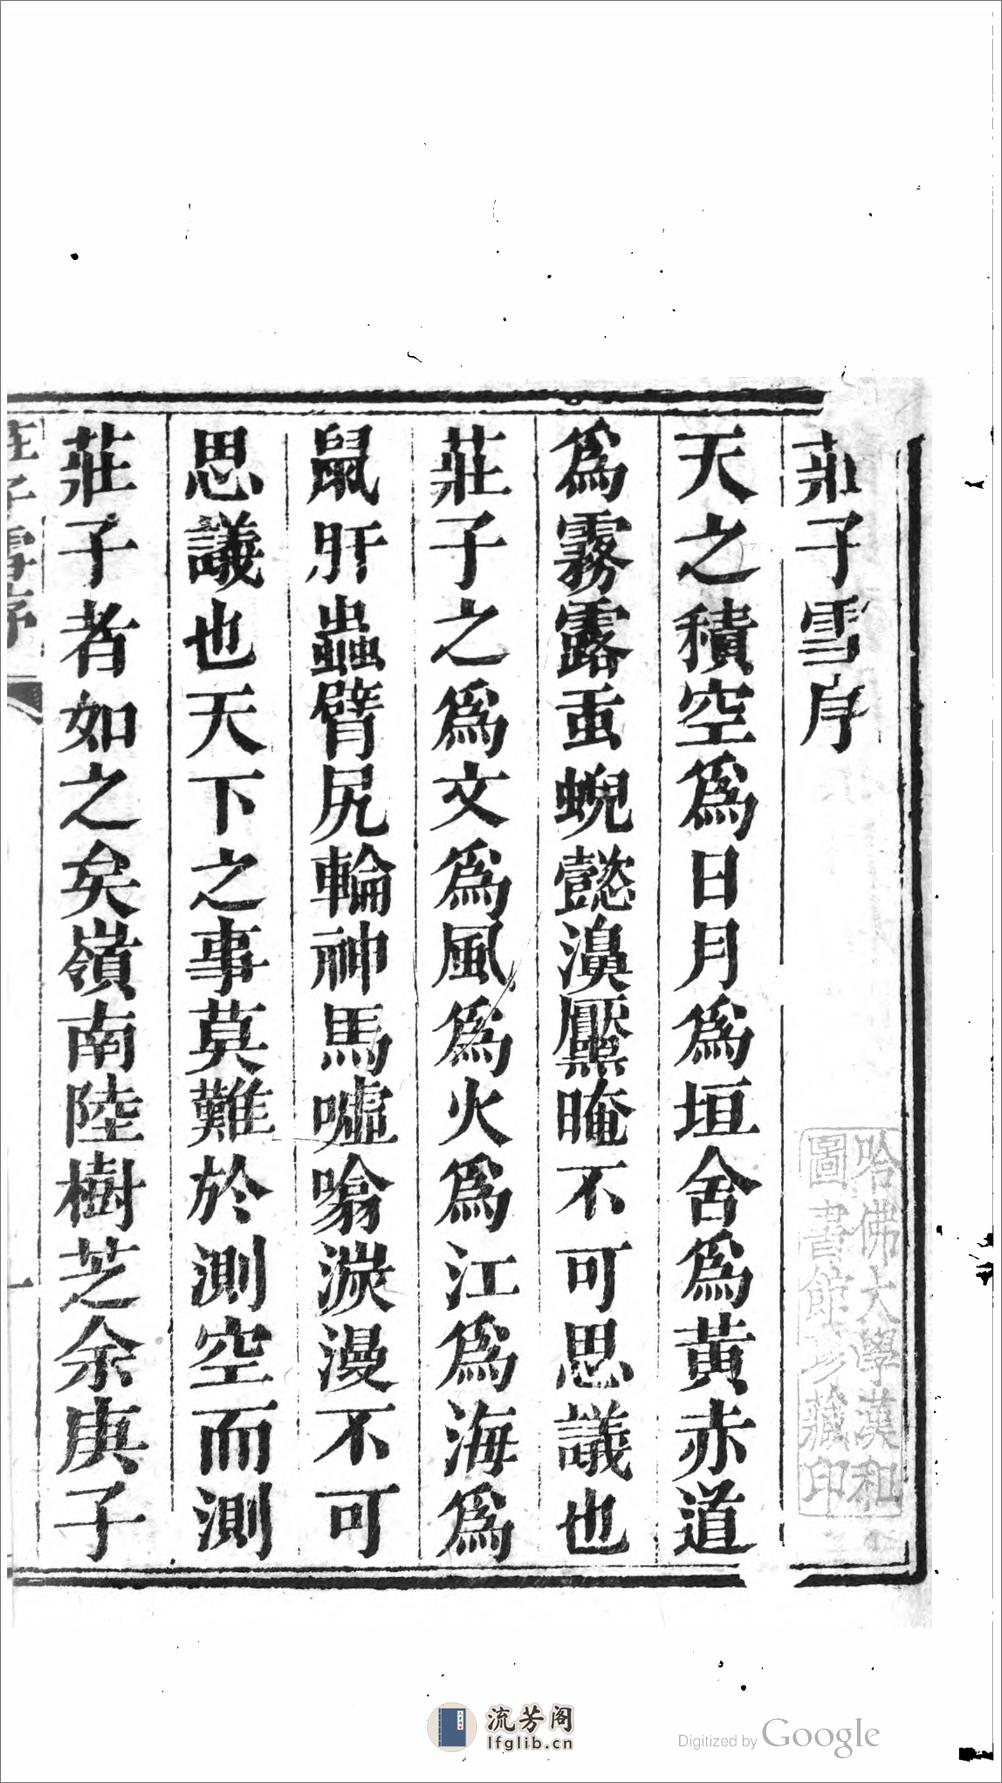 莊子雪序
天之積空爲日月爲垣舍爲黃赤道
爲霧露䖝蜺懿濞黶晻不可思議也
莊子之爲文爲風爲火爲江爲海爲
鼠肝蟲臂尻輪神馬噓噏漭漫不可
思議也天下之事莫難於測空而測
莊子者如之矣嶺南陸樹芝余庚子
莊子雪序
一
哈佛大學漢和
圖書館珍藏印
流芳阁
lfglib.cn
Digitized by Google